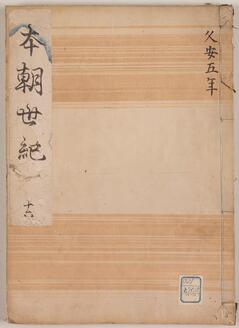 久安五年
本朝世紀
十六